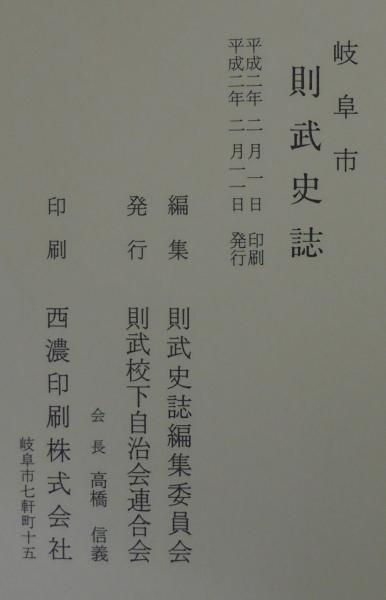 岐阜市
則武史誌
平成二年 二月 一日 印刷
平成二年 二月一一日 発行
編集 則武史誌編集委員会
発行 則武校下自治会連合会
会長 高橋信義
印刷 西濃印刷株式会社
岐阜市七軒町十五